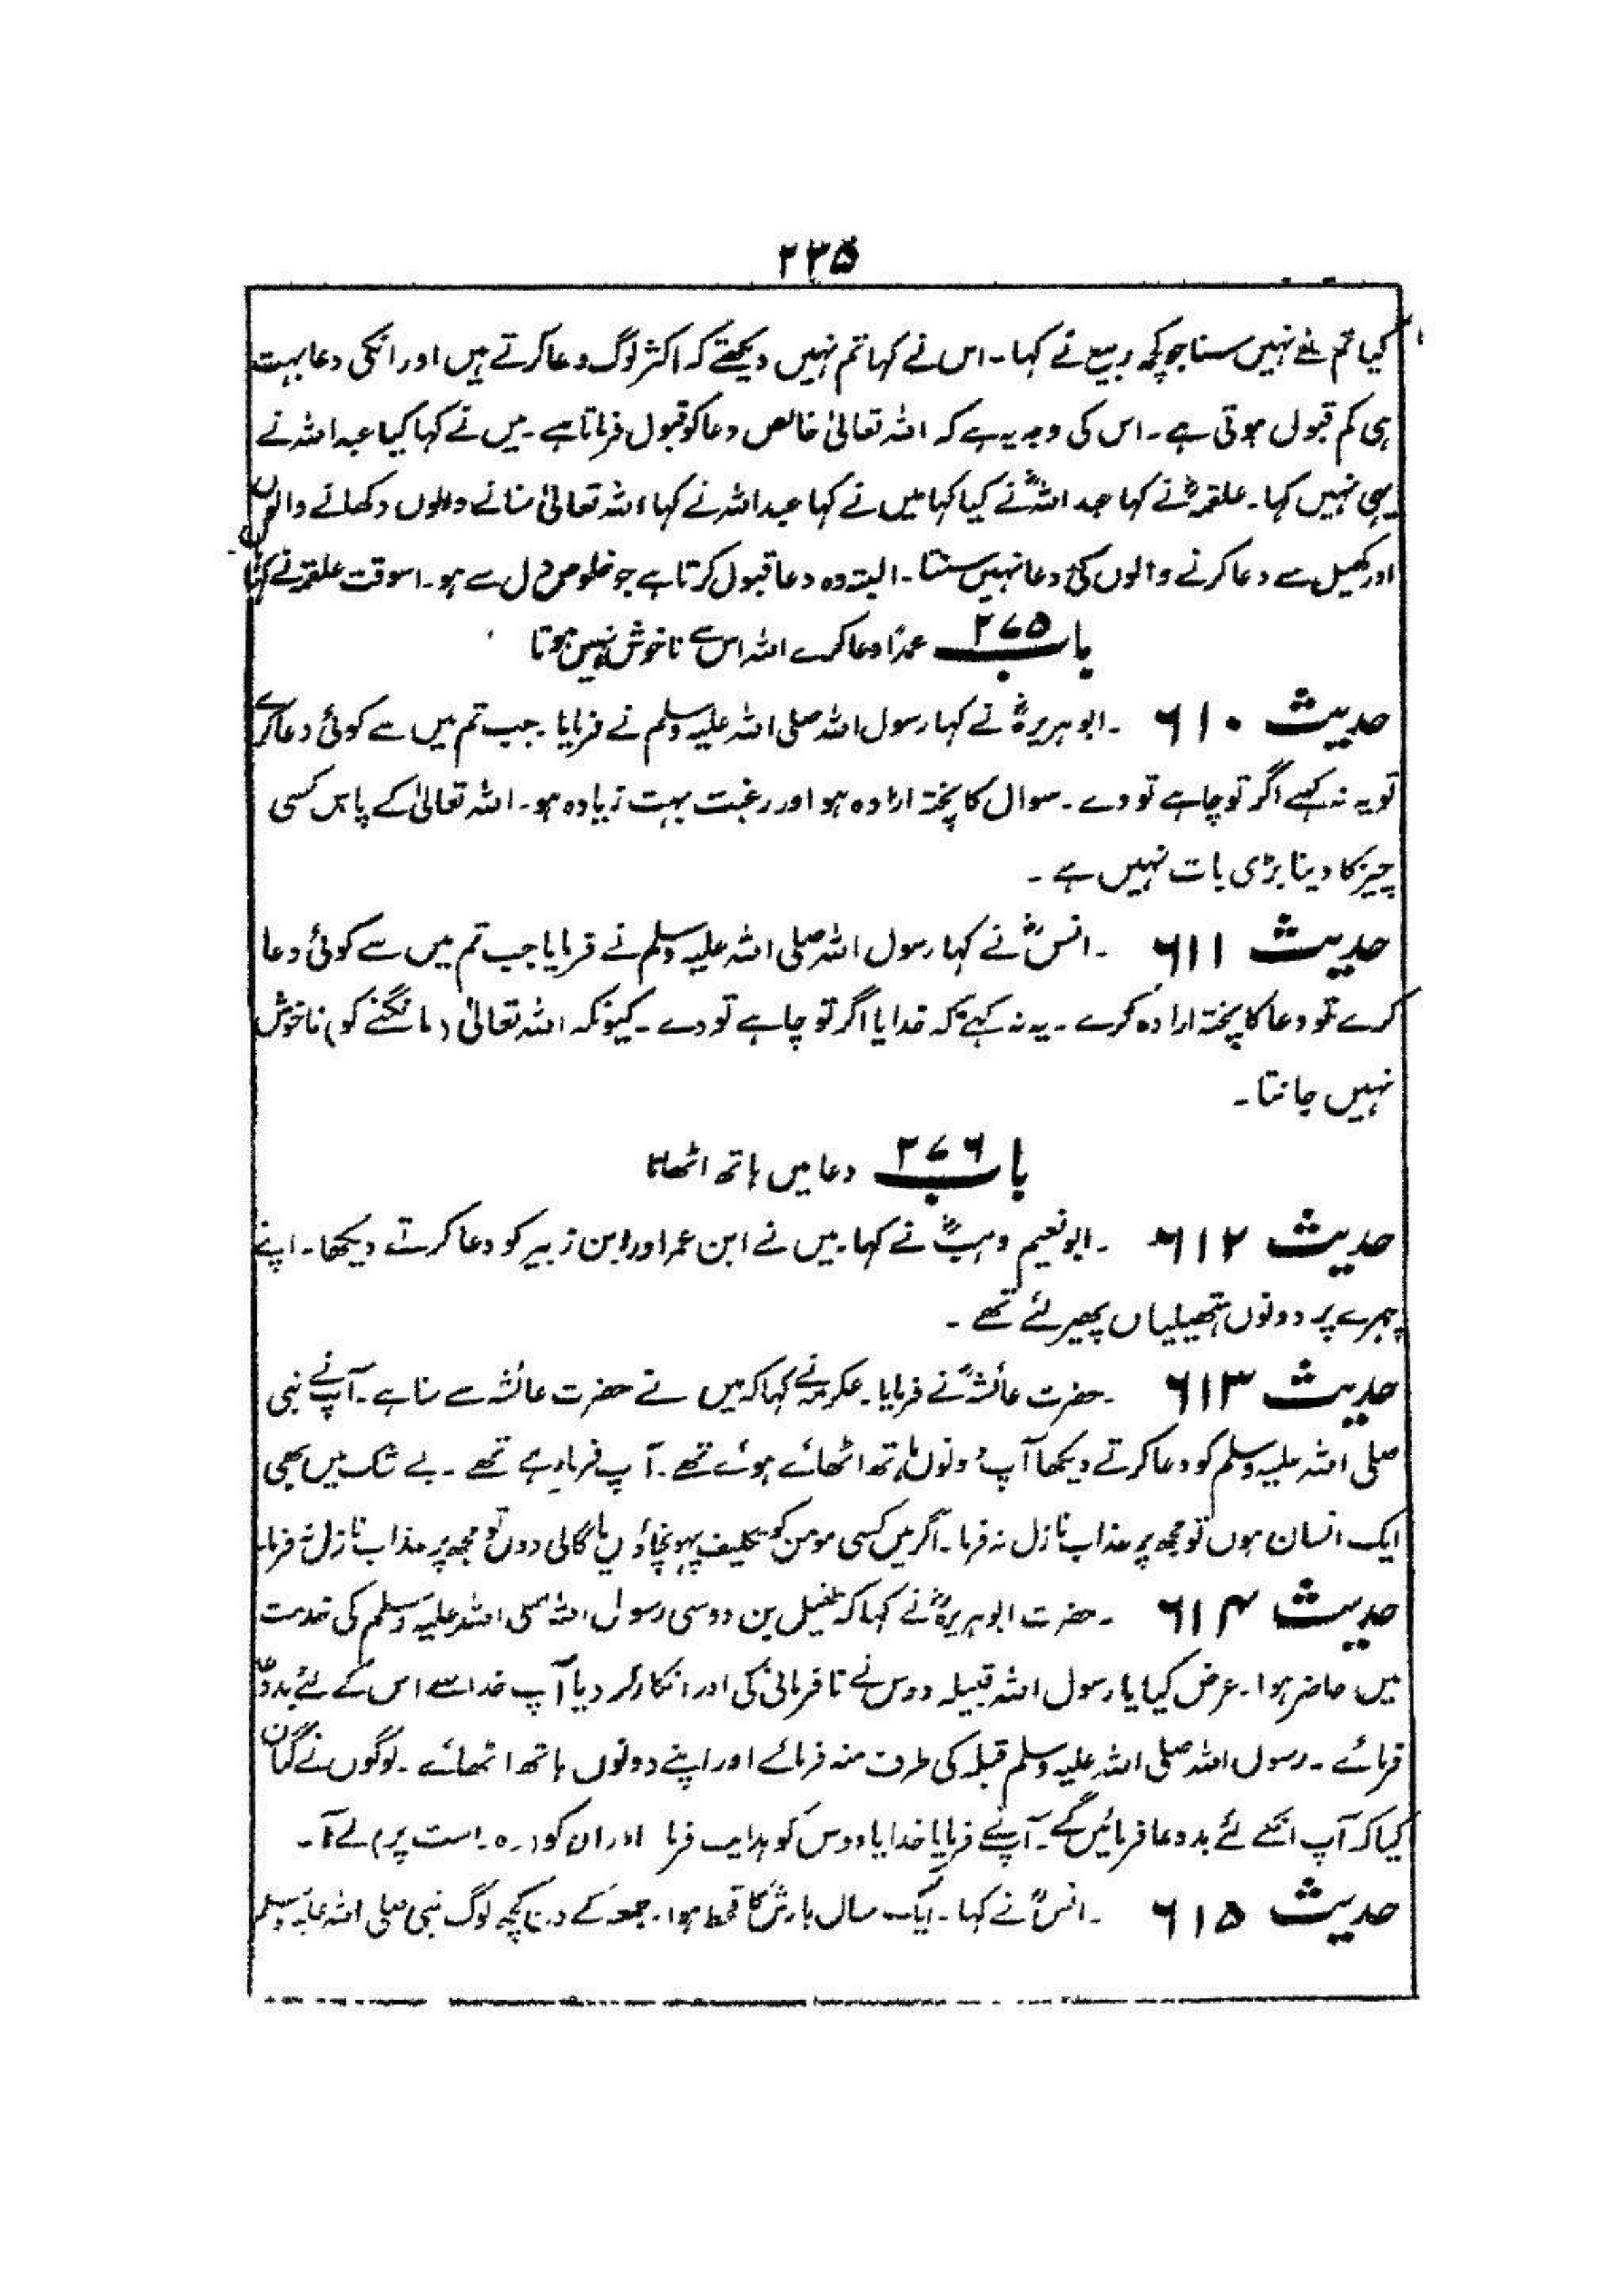 ۲۳۵
کیا تم نے نہیں سنا جو کچھ ربیع نے کہا۔ اس نے کہا تم نہیں دیکھتے کہ اکثر لوگ دعا کرتے ہیں اور انکی دعا بہت
ہی کم قبول ہوتی ہے۔ اس کی وجہ یہ ہے کہ اللہ تعالیٰ خالص دعا کو قبول فرماتا ہے۔ میں نے کہا کیا عبداللہ نے
یہی نہیں کہا۔ علقمہؓ نے کہا عبد اللہؓ نے کیا کہا میں نے کہا عبداللہ نے کہا اللہ تعالیٰ سنانے والوں دکھانے والوں
اور کھیل سے دعا کرنے والوں کی دعا نہیں سنتا۔ البتہ وہ دعا قبول کرتا ہے جو خلوص دل سے ہو۔ اسوقت علقمہ نے کہا
باب ۲۷۵ عمداً دعا کرے اللہ اس سے ناخوش نہیں ہوتا
حدیث ۶۱۰ ۔ ابو ہریرہؓ نے کہا رسول اللہ صلی اللہ علیہ وسلم نے فرمایا۔ جب تم میں سے کوئی دعا کرے
تو یہ نہ کہے اگر تو چاہے تو دے۔ سوال کا پختہ ارادہ ہو اور رغبت بہت زیادہ ہو۔ اللہ تعالیٰ کے پاس کسی
چیز کا دینا بڑی بات نہیں ہے۔
حدیث ۶۱۱ ۔ انسؓ نے کہا رسول اللہ صلی اللہ علیہ وسلم نے فرمایا جب تم میں سے کوئی دعا
کرے تو دعا کا پختہ ارادہ کرے۔ یہ نہ کہے کہ خدایا اگر تو چاہے تو دے۔ کیونکہ اللہ تعالیٰ (مانگنے کو) ناخوش
نہیں جانتا۔
باب ۲۷۶ دعا میں ہاتھ اٹھانا
حدیث ۶۱۲ ۔ ابو نعیم وہبؓ نے کہا۔ میں نے ابن عمر اور ابن زبیر کو دعا کرتے دیکھا۔ اپنے
چہرے پر دونوں ہتھیلیاں پھیر لئے تھے۔
حدیث ۶۱۳ ۔ حضرت عائشہؓ نے فرمایا۔ عکرمہ نے کہا کہ میں نے حضرت عائشہ سے سنا ہے۔ آپ نے نبی
صلی اللہ علیہ وسلم کو دعا کرتے دیکھا آپ دونوں ہاتھ اٹھائے ہوئے تھے۔ آپ فرما رہے تھے۔ بے شک میں بھی
ایک انسان ہوں تو مجھ پر عذاب نازل نہ فرما۔ اگر میں کسی مومن کو تکلیف پہونچاؤں یا گالی دوں تو مجھ پر عذاب نازل نہ فرما۔
حدیث ۶۱۴ ۔ حضرت ابو ہریرہؓ نے کہا کہ طفیل بن دوسی رسول اللہ صلی اللہ علیہ وسلم کی خدمت
میں حاضر ہوا۔ عرض کیا یا رسول اللہ قبیلہ دوس نے نافرمانی کی اور انکار کر دیا آپ خدا سے اس کے لئے بددعا
فرمائے۔ رسول اللہ صلی اللہ علیہ وسلم قبلہ کی طرف منہ فرمائے اور اپنے دونوں ہاتھ اٹھائے۔ لوگوں نے گمان
کیا کہ آپ انکے لئے بددعا فرمائیں گے۔ آپ نے فرمایا خدایا دوس کو ہدایت فرما اور ان کو (راہ راست پر) لے آ۔
حدیث ۶۱۵ ۔ انسؓ نے کہا۔ ایک سال بارش کا قحط ہوا۔ جمعہ کے دن کچھ لوگ نبی صلی اللہ علیہ وسلم